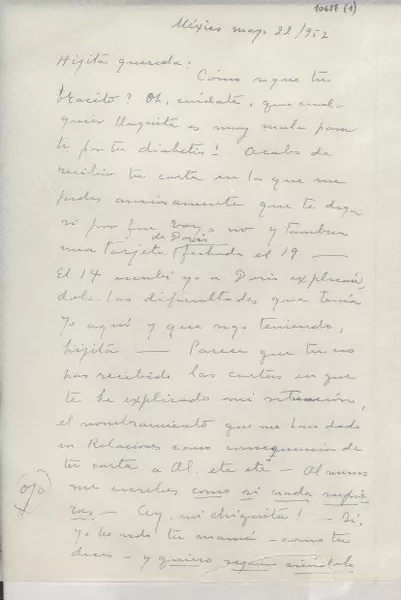 10657 (1)
México mayo 22/952
Hijita querida:
Como sigue tu
bracito? Oh, cuídate, que cual-
quier llaguita es muy mala para
ti por tu diabetis! Acabo de
recibir tu carta en la que me
pides ansiosamente que te diga
si por fin voy o no y tambien
una tarjeta de Doris fechada el 19 —
El 14 escribí yo a Doris explicán-
dole las dificultades que tenía
yo aquí y que sigo teniendo,
hijita — Parece que tu no
has recibido las cartas en que
te he explicado mi situación,
el nombramiento que me han dado
en Relaciones como consequencia de
tu carta a Al. etc etc — Al menos
me escribes como si nada supie
ras — Ay, mi chiquita! — Si,
yo he sido tu mamá — como tu
dices — y quiero seguir siéndolo
ojo